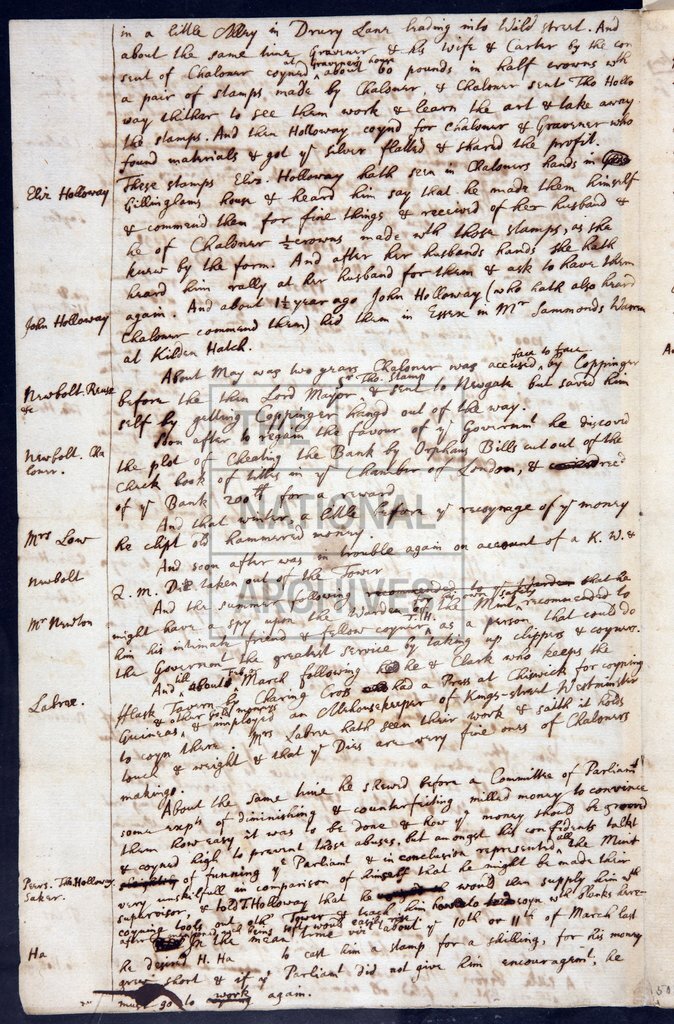 in a little Alley in Drury Lane leading into Wild street. And
about the same time Gravener & his Wife & Carter by the con
sent of Chaloner coyned at Graveners house about 60 pounds in half crowns wth
a pair of stamps made by Chaloner, & Chaloner sent Tho Hollo
way thither to see them work & learn the art & take away
the stamps. And then Holloway coynd for Chaloner & Gravener who
found materials & got ye silver flatted & shared the profit.
Eliz Holloway
These stamps Eliz. Holloway hath seen in Chaloners hands in
Gillinghams house & heard him say that he made them himself
& commend them for fine things & received of her husband &
he of Chaloner ½ crowns made wth those stamps, as she
knew by the form. And after her husbands hands she hath
heard him rally at her husband for them & ask to have them
John Holloway
again. And about 1½ year ago John Holloway (who hath also heard
Chaloner commend them) hid them in Essex in Mr Sammonds Warren
at Kilden Hatch.
About May was two years Chaloner was accused face to face by Coppinger
Newbolt. Reuse
&c
before the then Lord Mayor Sr Tho. Stamp & sent to Newgate but saved him
self by getting Coppinger hangd out of the way.
Soon after to regain the favour of ye Governmt he discoved
Newbolt. Cha
loner.
the plot of Cheating the Bank by Orphans Bills cut out of the
Check book of titles in ye Chamber of London, &
of ye Bank 200lb for a reward.
And that winter a little before ye recoynage of ye money
Mrs Law
he clipt old hammered money.
And soon after was in trouble again on account of a K. W. &
Newbolt
Q. M. Die taken out of the Tower
And the summer following that he
Mr Newton
might have a spy upon the Warden of the Mint, recommended to
him his intimate friend & fellow coyner T. H. as a person that could do
the Governmt the greatest service by taking up clippers & coyners.
And till about March following he & Clark who keeps the
Labree.
fflask Tavern by Charing Cross had a Press at Chiswick for coyning
Guineas, & other moneys & employed an Alehousekeeper of Kings-street Westminster
to coyn there. Mrs Labree hath seen their work & saith it holds
touch & weight & that ye Dies are very fine ones of Chaloners
making.
About the same time he shewd before a Committee of Parliamt
some expts of diminishing & counterfeiting milled money to convince
them how easy it was to be done & how ye money should be groovd
& coyned high to prevent those abuses, but amongst his confidents talkt
of funning ye Parliant & in conclusion represented all the Mint
very unskilfull in comparison of himself that he might be made their
Peers. Tho Holloway.
Saker.
supervisor, & told THolloway that he would then supply him wth
coyning tools out oth Tower & teach him to coyn wth blanks here-
after
In the mean time vizt about ye 10th or 11th of March last
Ha
he desired H. Ha to cast him a stamp for a shilling, for his money
grew short & if ye Parliamt did not give him encouragemt, he
must go to work again.
THE
NATIONAL
ARCHIVES